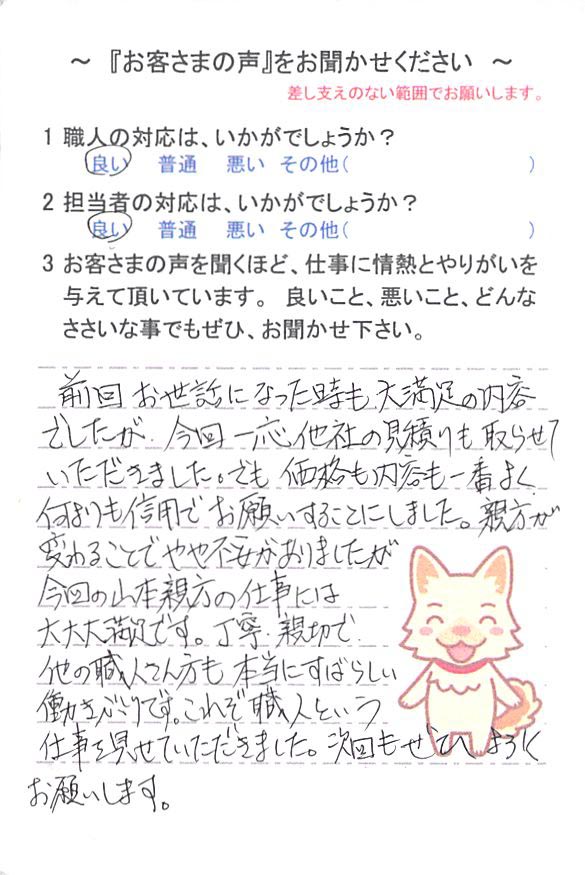 ～ 『お客さまの声』をお聞かせください ～
差し支えのない範囲でお願いします。
1 職人の対応は、いかがでしょうか？
良い 普通 悪い その他( )
2 担当者の対応は、いかがでしょうか？
良い 普通 悪い その他( )
3 お客さまの声を聞くほど、仕事に情熱とやりがいを
与えて頂いています。 良いこと、悪いこと、どんな
ささいな事でもぜひ、お聞かせ下さい。
前回お世話になった時も大満足の内容
でしたが、今回一応他社の見積りも取らせて
いただきました。でも価格も内容も一番よく
何よりも信用でお願いすることにしました。親方が
変わることでやや不安がありましたが
今回の山本親方の仕事には
大大大満足です。丁寧・親切で
他の職人さん方も本当にすばらしい
働きぶりです。これぞ職人という
仕事を見せていただきました。次回もぜひよろしく
お願いします。